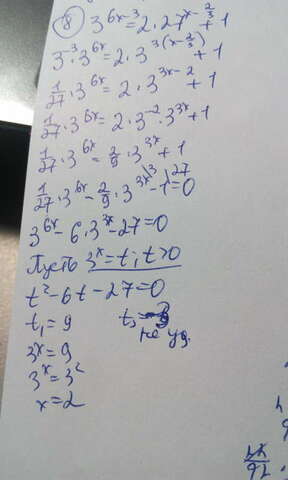 ⑧ 3^{6x-3} = 2 · 27^{x-\frac{2}{3}} + 1
3^{-3} · 3^{6x} = 2 · 3^{3(x-\frac{2}{3})} + 1
\frac{1}{27} · 3^{6x} = 2 · 3^{3x-2} + 1
\frac{1}{27} · 3^{6x} = 2 · 3^{-2} · 3^{3x} + 1
\frac{1}{27} · 3^{6x} = \frac{2}{9} · 3^{3x} + 1
\frac{1}{27} · 3^{6x} - \frac{2}{9} · 3^{3x} \^{3} - 1 \^{27} = 0
3^{6x} - 6 · 3^{3x} - 27 = 0
Пусть 3^x = t, t > 0
t² - 6t - 27 = 0
t₁ = 9 t₂ = -3
3^x = 9 не уд.
3^x = 3²
x = 2
\frac{16}{}